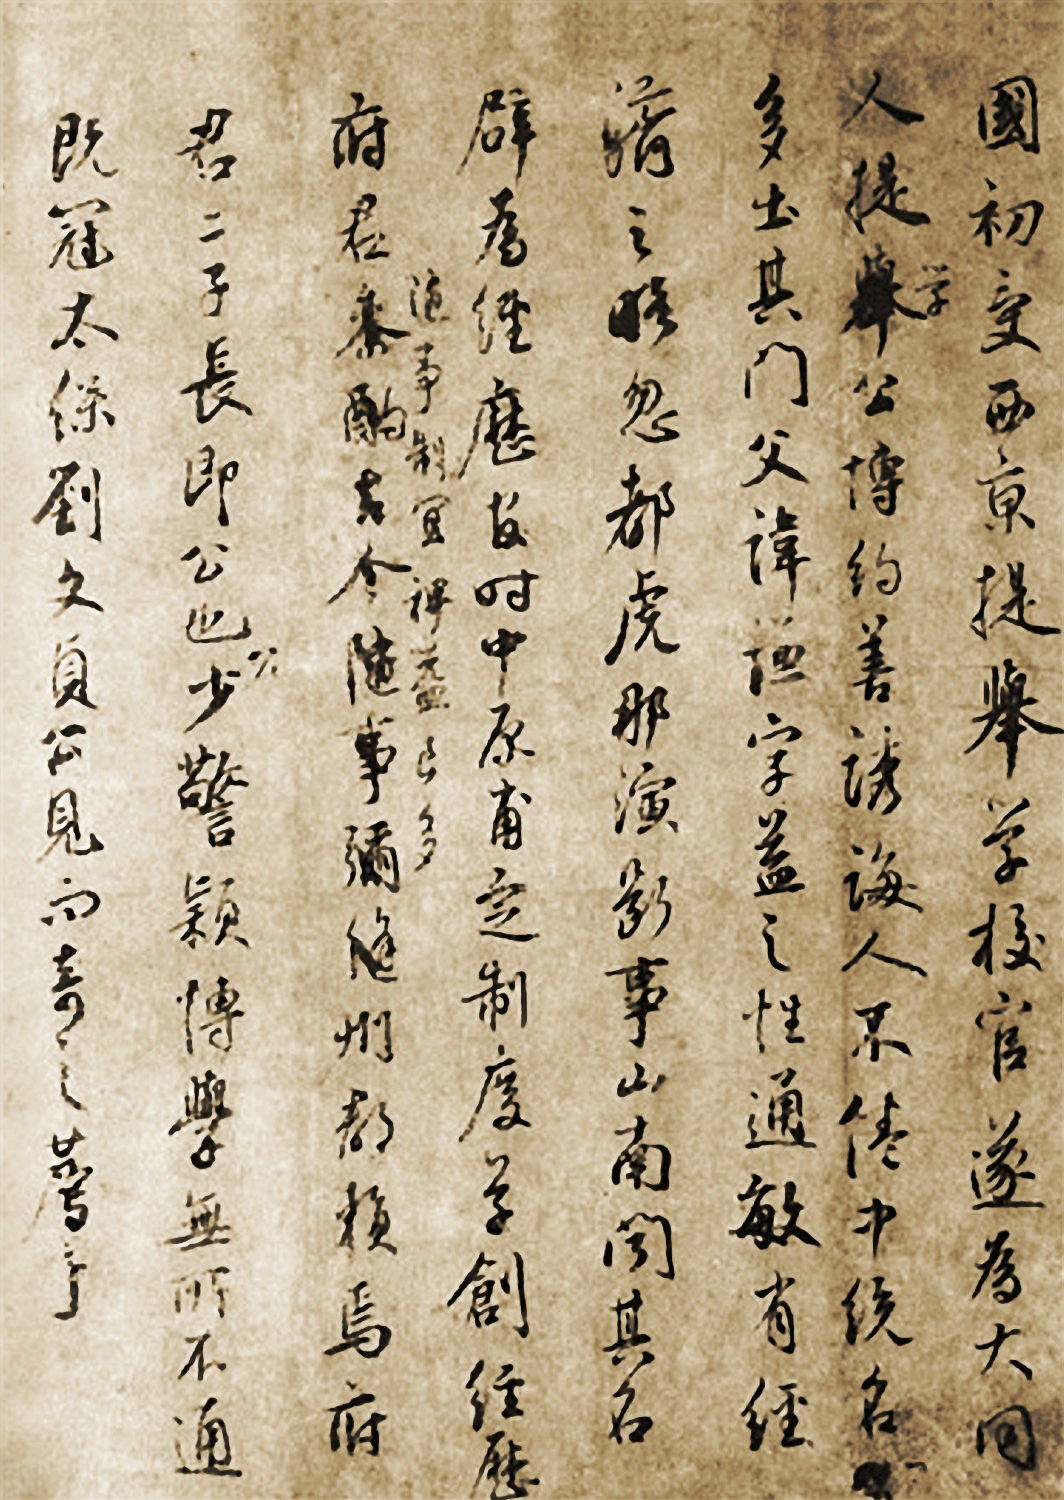 國初受西京提舉學校官遂為大同
人提舉公博約善誘誨人不倦中統名
学
多出其門父諱謙字益之性通敏有經
濟之略忽都虎那演斷事山南聞其名
辟為經歷時中原甫定制度草創經歷
隨事制宜裨益良多
府君參酌古今隨事彌縫州郡賴焉府
君二子長即公也少警穎博學無所不通
公
既冠太保劉文貞公見而奇之薦于